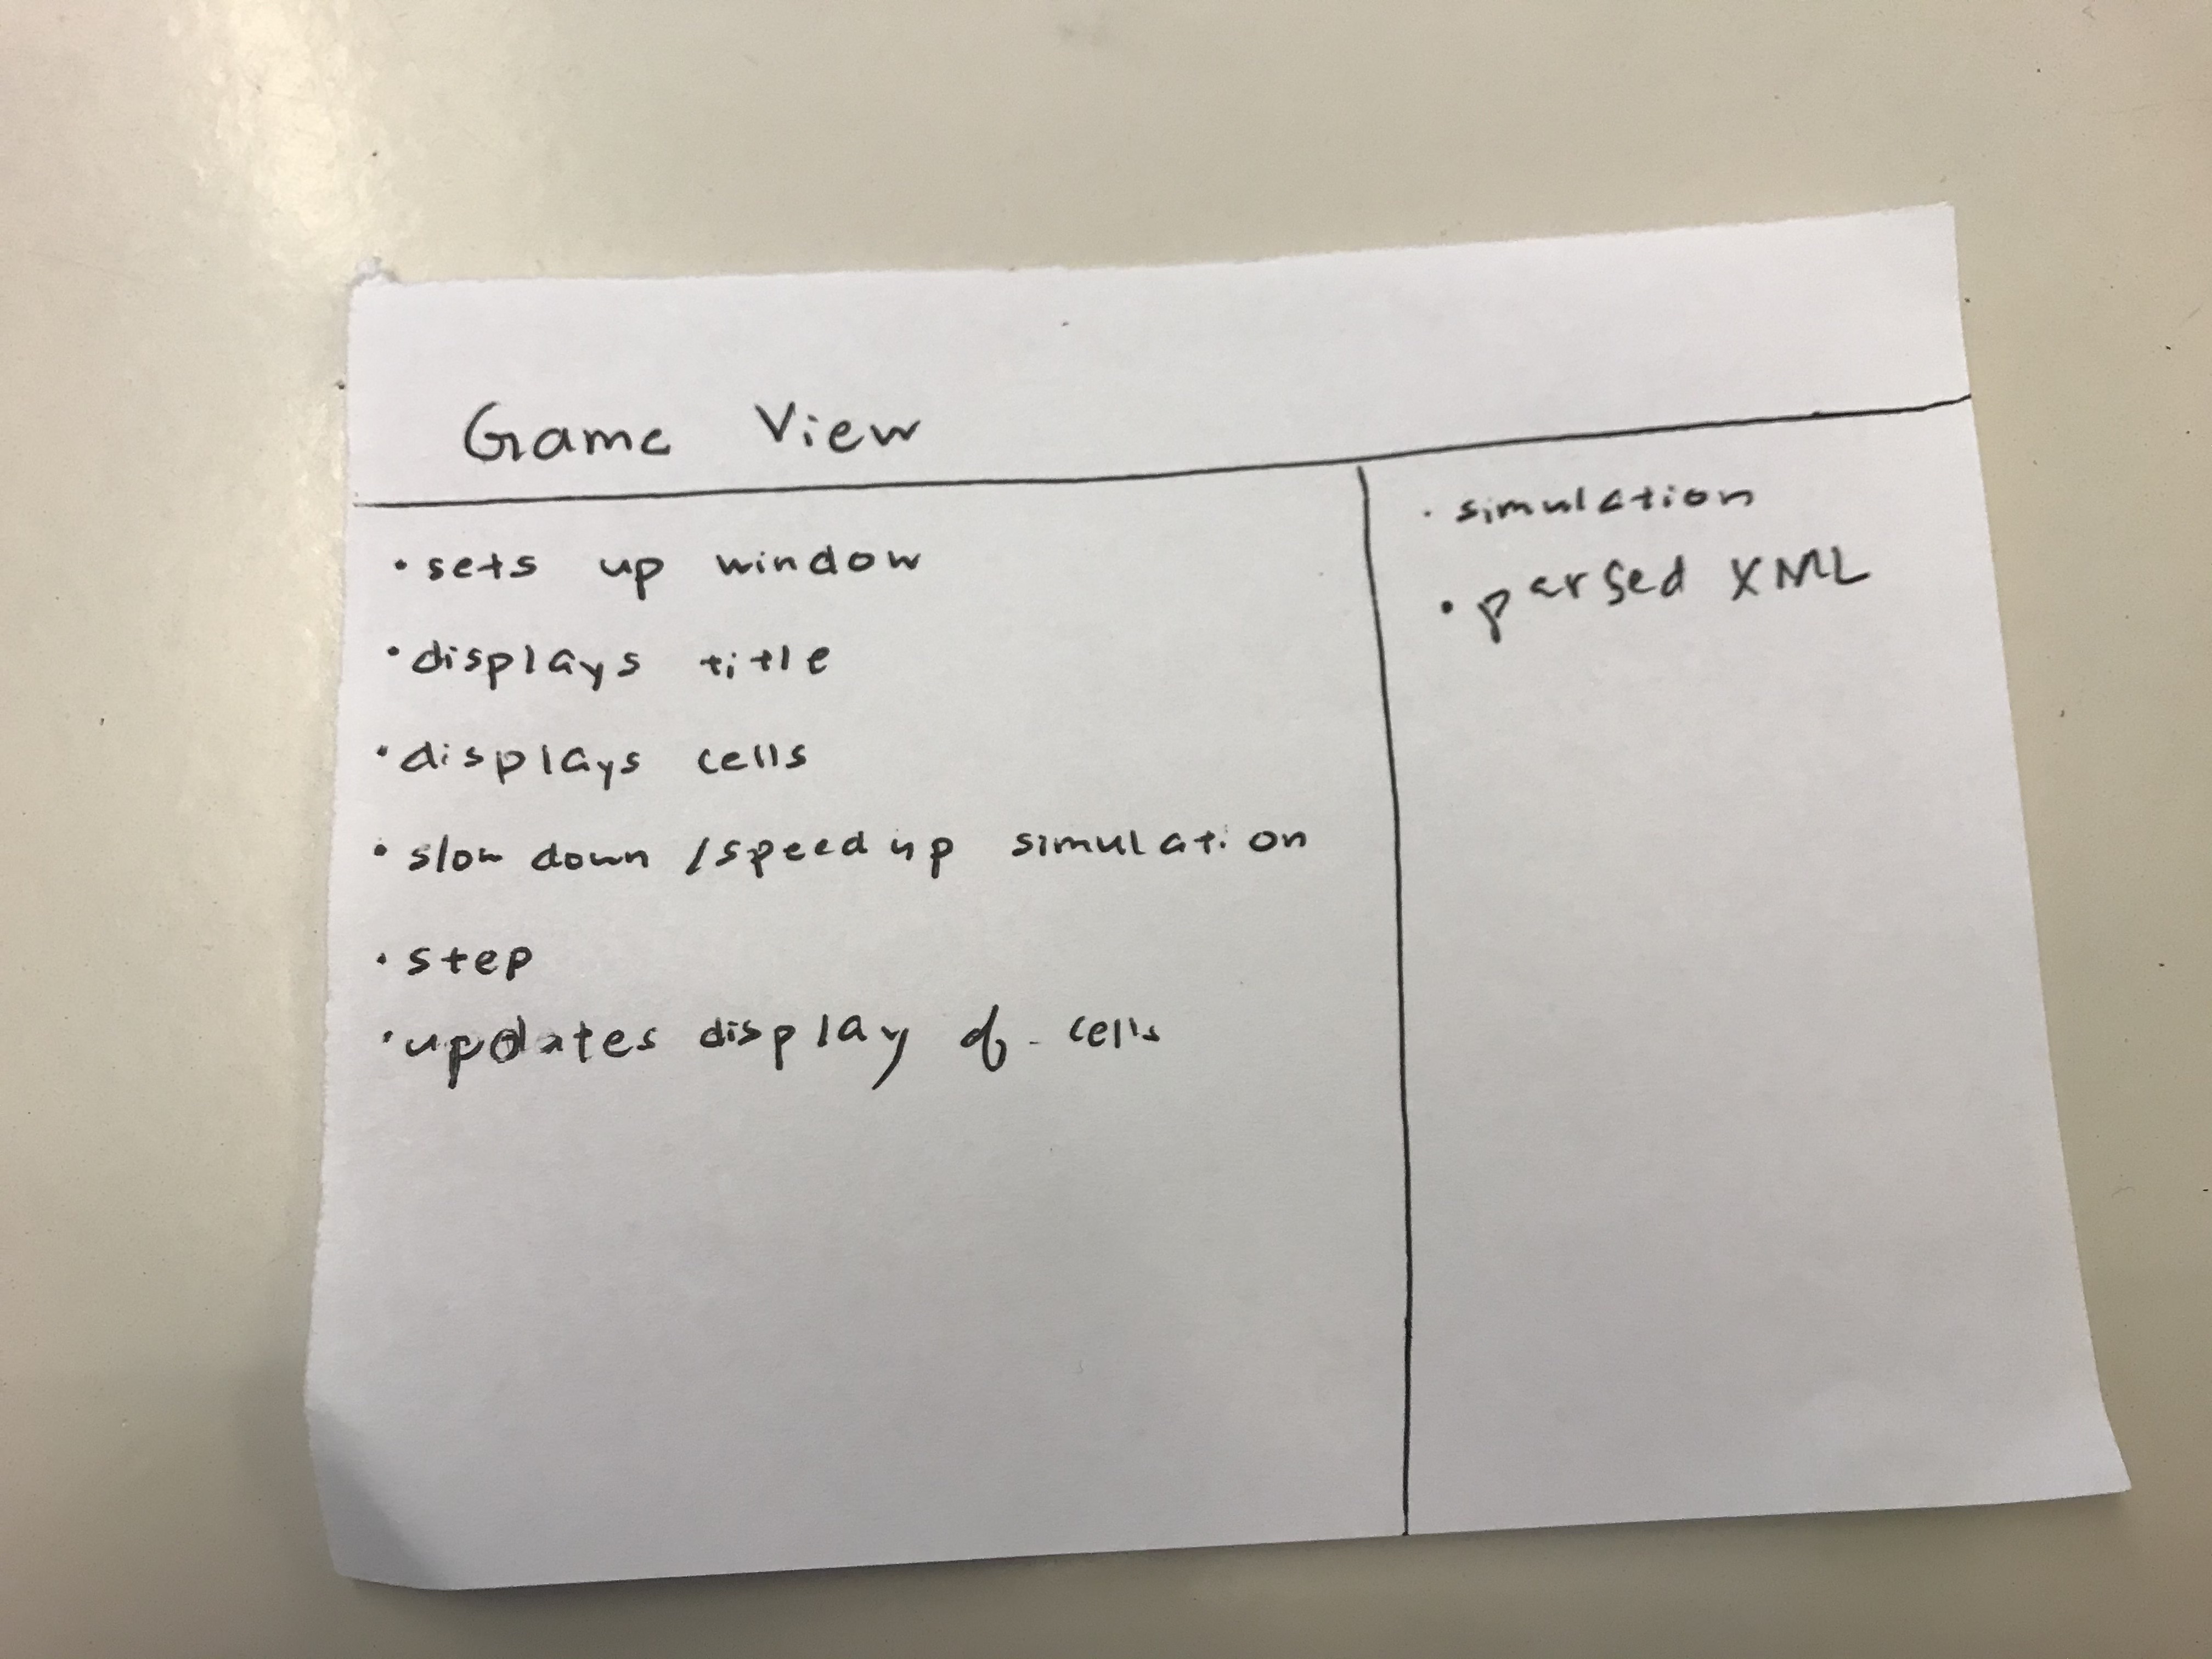 Game View
• sets up window
• displays title
• displays cells
• slow down / speed up simulation
• step
• updates display of cells
• simulation
• parsed XML